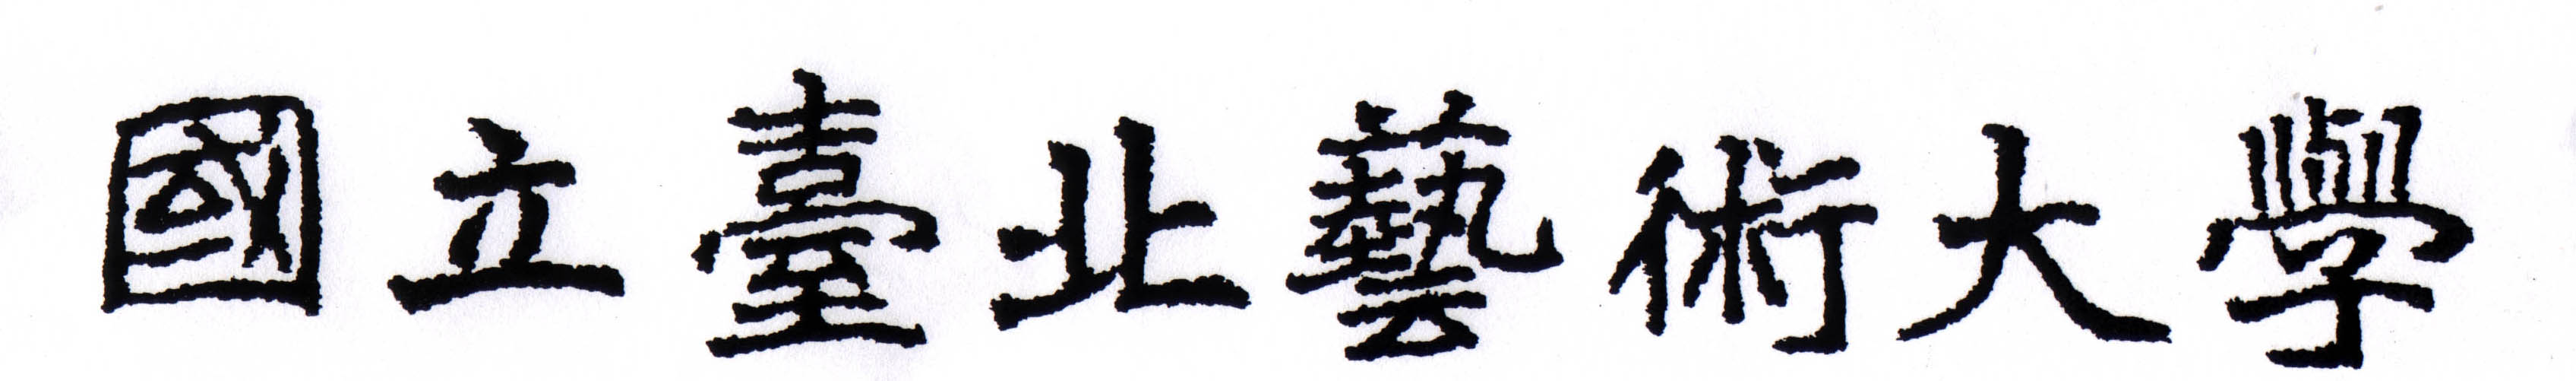 國立臺北藝術大學